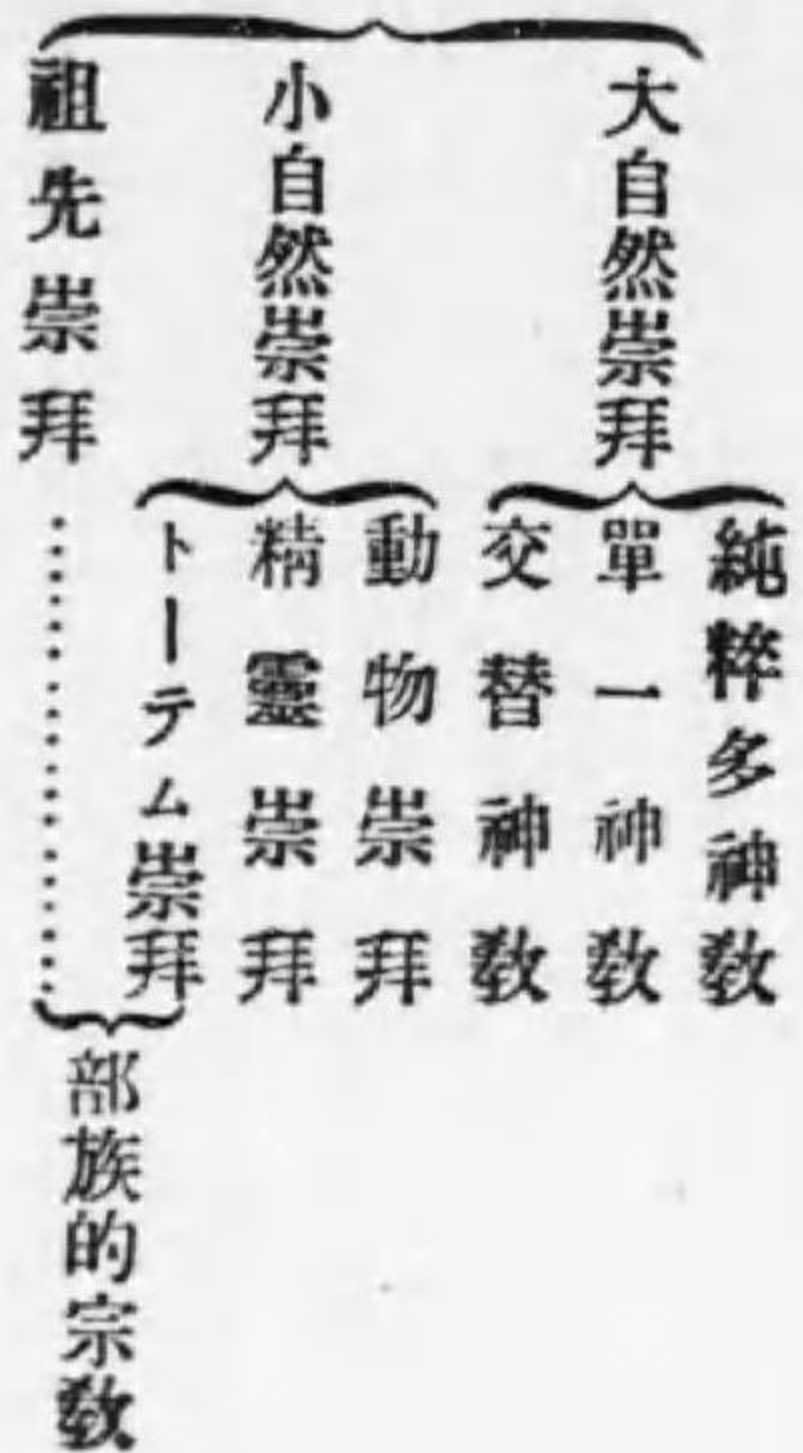 大自然崇拜
純粹多神教
單一神教
交替神教
小自然崇拜
動物崇拜
精靈崇拜
トーテム崇拜
祖先崇拜
部族的宗教